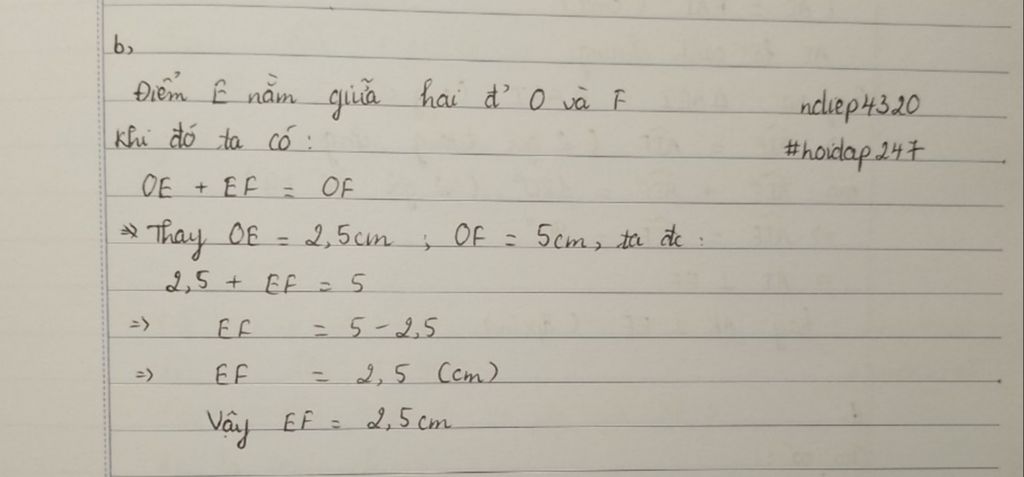 b,
Điểm E nằm giữa hai đ' O và F
ndiep4320
Khi đó ta có :
#hoidap247
OE + EF = OF
=> Thay OE = 2,5cm ; OF = 5cm, ta đc :
2,5 + EF = 5
=> EF = 5 - 2,5
=> EF = 2,5 (cm)
Vậy EF = 2,5cm